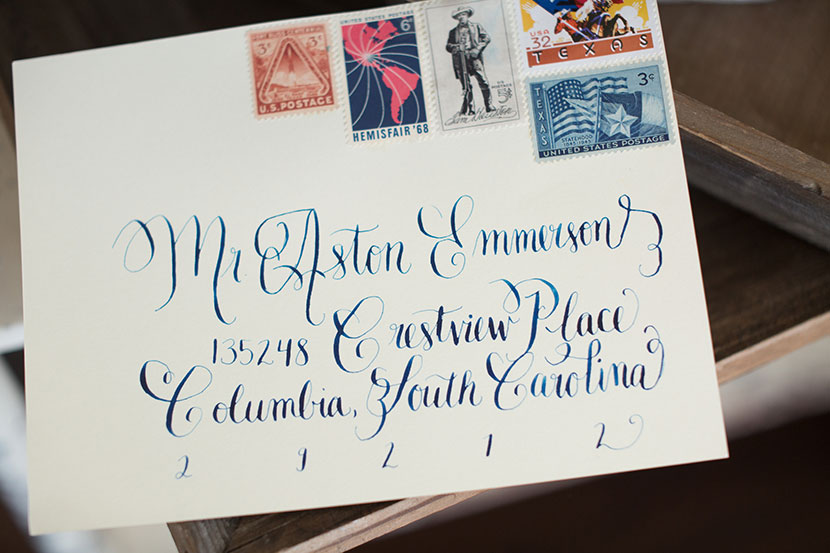 FORT BLISS CENTENNIAL
3¢ 3¢
U.S. POSTAGE
UNITED STATES POSTAGE
6¢
HEMISFAIR '68
U.S. POSTAGE
5¢
Sam Houston
USA
32
TEXAS
3¢
TEXAS
STATEHOOD
1845-1945
UNITED STATES POSTAGE
Mr. Aston Emmerson
135248 Crestview Place
Columbia, South Carolina
2 9 2 1 2